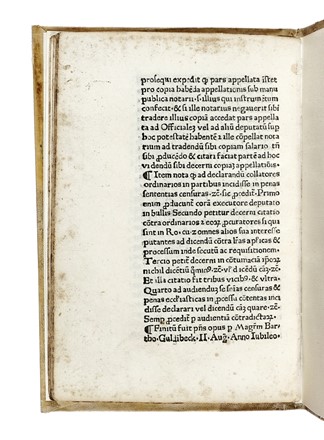 prosequi expedit ꝙ pars appellata īstet
pro copia habēda appellationis sub manu
publica notarii · si illius qui instrumētum
confecit · & si ille notarius negauerit sibi
tradere illius copiā accedat pars appella
ta ad Officialeʒ vel ad aliū deputatū sup
hoc potestatē habentē z ille cōpellat nota
rium ad tradendū sibi copiam salario · tn̄
sibi ꝓducēdo & citari faciat partē ad hoc
videndū sibi decerni copiaʒ appellatōis ·
¶ Item nota q̄ ad declarandū collatores
ordinarios in partibus incidisse in penas
sententias censuras · zc̄ · sic ꝓcedit · Primo
enim ꝓducunt corā executore deputato
in bullis Secundo petitur decerni citatio
cōtra ordinarios z eoꝝ ꝓcuratores si qui
sint in Ro. cu · z omnes alios sua interesse
putantes ad dicendū cōtra lr̄as aplicas &
processum inde secutos & recognoscenduʒ
Tercio petit̄ decerni in cōtumaciā ipsoꝝ
nichil dicētiū
Et illa citatio fit tribus vicibꝰ & vltra
Quarto ad audienduʒ se seriās censuras &
penas eccl̄iasticas in ꝓcessu cōtentas inci
disse declarari vel dicendū cāʒ quare · zc̄ ·
Semꝑ ꝓcedit̄ ꝑ audientiā cōtradictaꝝ ·
¶ Finitū fuit pn̄s opus ꝑ Magr̄m Bar-
tho · Guldibeck · II · Auḡ · Anno Iubileo ·